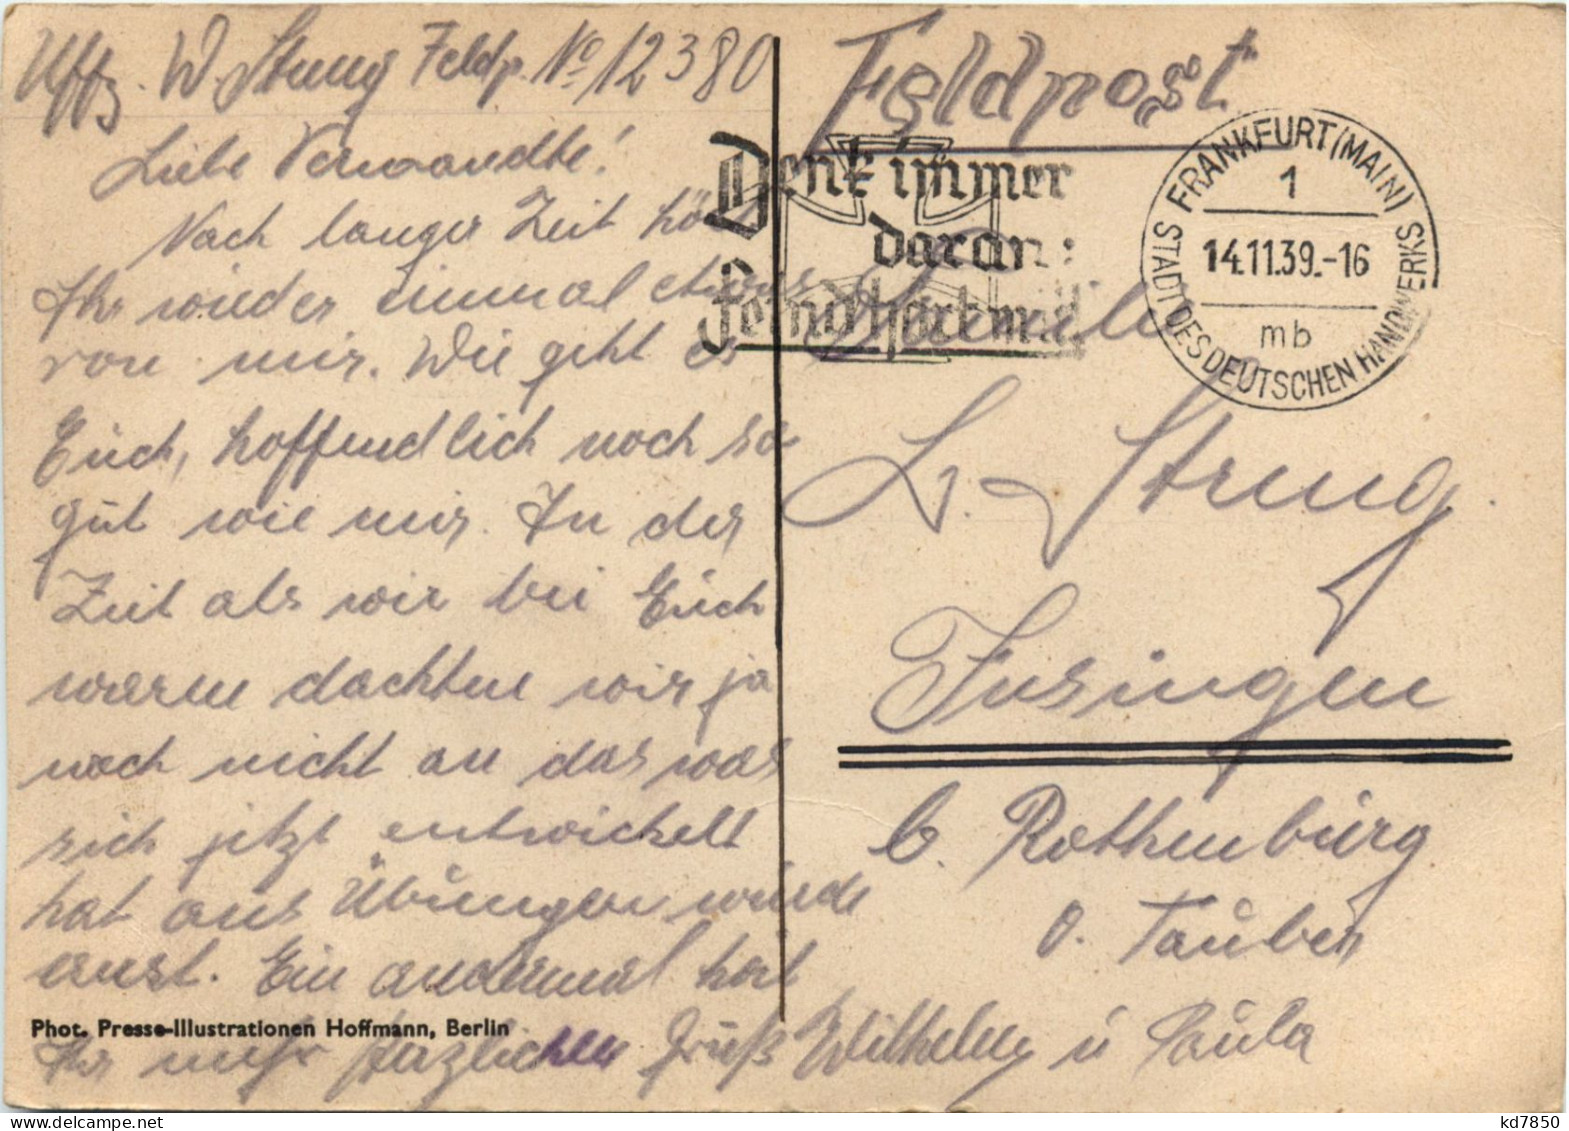 Uffz. W. Strung Feldp. No 12380
Liebe Verwandte!
Nach langer Zeit hört
Ihr wieder einmal etwas
von mir. Wie geht es
Euch, hoffendlich noch so
gut wie mir. In der
Zeit als wir bei Euch
waren dachten wir ja
noch nicht an das was
sich jetzt entwickelt
hat aus Übungen wurde
ernst. Ein andermal hört
Ihr mehr herzlichen Gruß Wilhelm u Paula
Phot. Presse-Illustrationen Hoffmann, Berlin
Feldpost
Denk immer
daran:
Feind hört mit
FRANKFURT (MAIN)
1
14.11.39.-16
mb
STADT DES DEUTSCHEN HANDWERKS
Familie
L. Strung
Insingen
b. Rothenburg
o. Tauber
kd7850